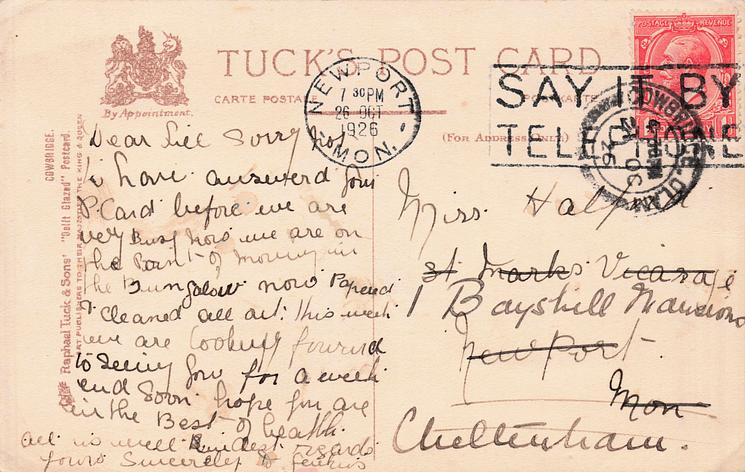 TUCK'S POST CARD
CARTE POSTALE
By Appointment.
(For Address Only)
POSTAGE REVENUE
NEWPORT
7 30 PM
26 OCT
1926
MON.
SAY IT BY
TELEPHONE
COWBRIDGE
26
COWBRIDGE.
"Delft Glazed" Postcard.
Raphael Tuck & Sons'
ART PUBLISHERS TO THEIR MAJESTIES THE KING & QUEEN
Dear Sorry
I have answerd your
P Card before we are
very Busy Now we are on
the Point of Moveing in
the Bungalow now Papered
& cleaned all out: this week
we are Looking forward
to Seeing you for a week
end Soon hope you are
in the Best of health
all is well Kindest regards
yours Sincereley
Miss
St Marks Vicarage
1 Bayshill Mansions
Newport
Mon
Cheltenham.